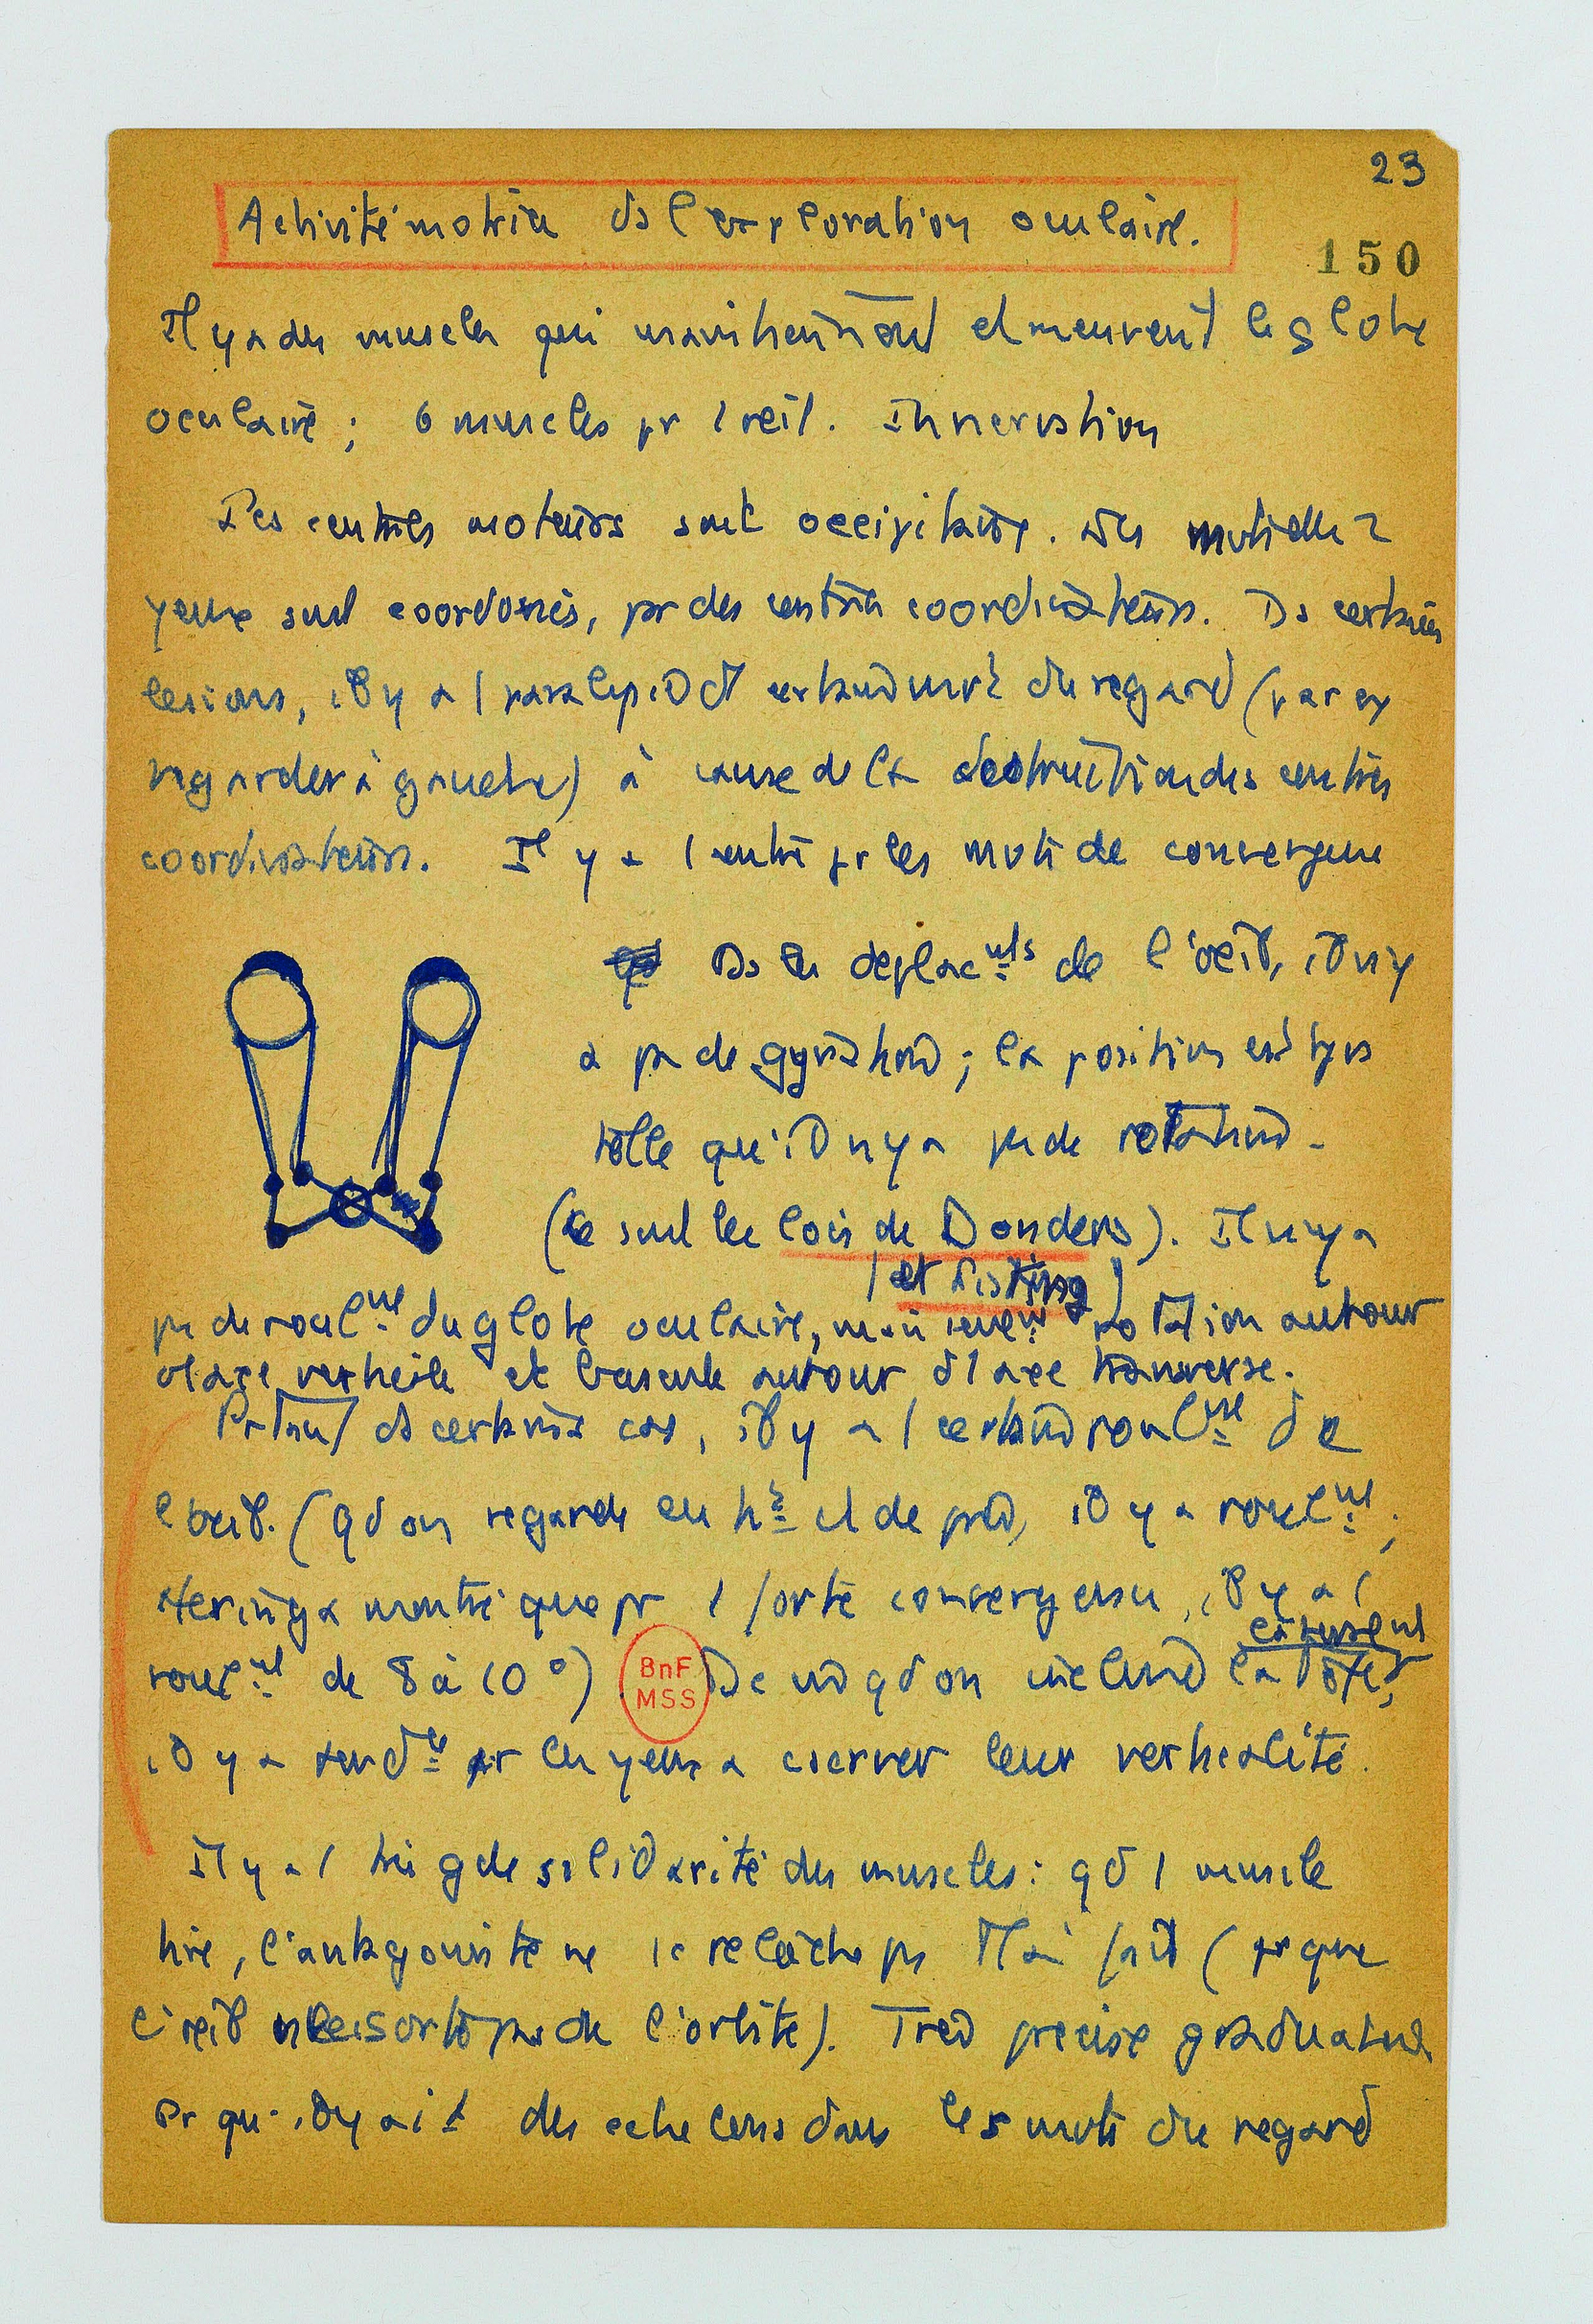 23
Activité motrice ds l'exploration oculaire.
150
Il y a des muscles qui maintiennent et meuvent le globe
oculaire ; 6 muscles pr 1 œil. Innervation
Les centres moteurs sont occipitaux. Les mvts des 2
yeux sont coordonés, par des centres coordinateurs. Ds certaines
lesions, il y a 1 paralysie d'1 certain mvt du regard (par ex
regarder à gauche) à cause de la destruction des centres
coordinateurs. Il y a 1 centre pr les mvts de convergence
Ds les deplacmts de l'œil, il n'y
a pas de gyration ; la position est tjrs
telle qu'il n'y a pas de rotation.
(ce sont les lois de Donders). Il n'y a
(et Listing)
pas de roulmt du globe oculaire, mais seulemt rotation autour
d'1 axe verticale et bascule autour d'1 axe transverse.
Prtant ds certains cas, il y a 1 certain roulmt de
l'œil. (qd on regarde en ht et de près, il y a roulmt ;
Hering a montré que pr 1 forte convergence, il y a 1
roulmt de 8 à 10°).
BnF
MSS
De m qd on incline la tête,
il y a tendce pr les yeux a cserver leur verticalité.
Il y a 1 très gde solidarité des muscles : qd 1 muscle
tire, l'antagoniste ne se relâche pas tt à fait (pr que
l'œil ne sorte pas de l'orbite). Très précise graduation
pr qu'il y ait des echelons dans les mvts du regard